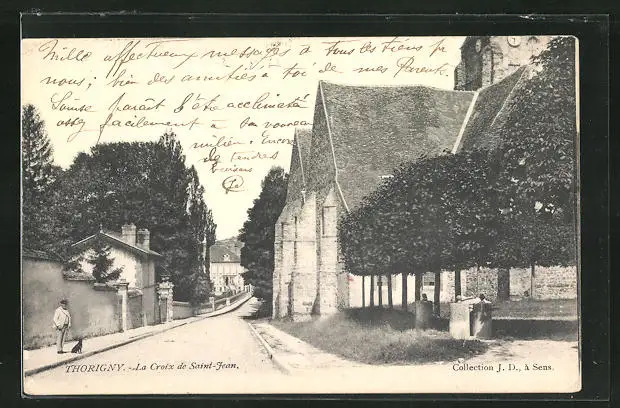 Mille affectueux messages à tous les tiens pr
nous; bien des amitiés à toi de mes Parents.
Louise paraît s'être acclimatée
assez facilement à son nouveau
milieu. Encore
de tendres
baisers
THORIGNY. - La Croix de Saint-Jean.
Collection J. D., à Sens.